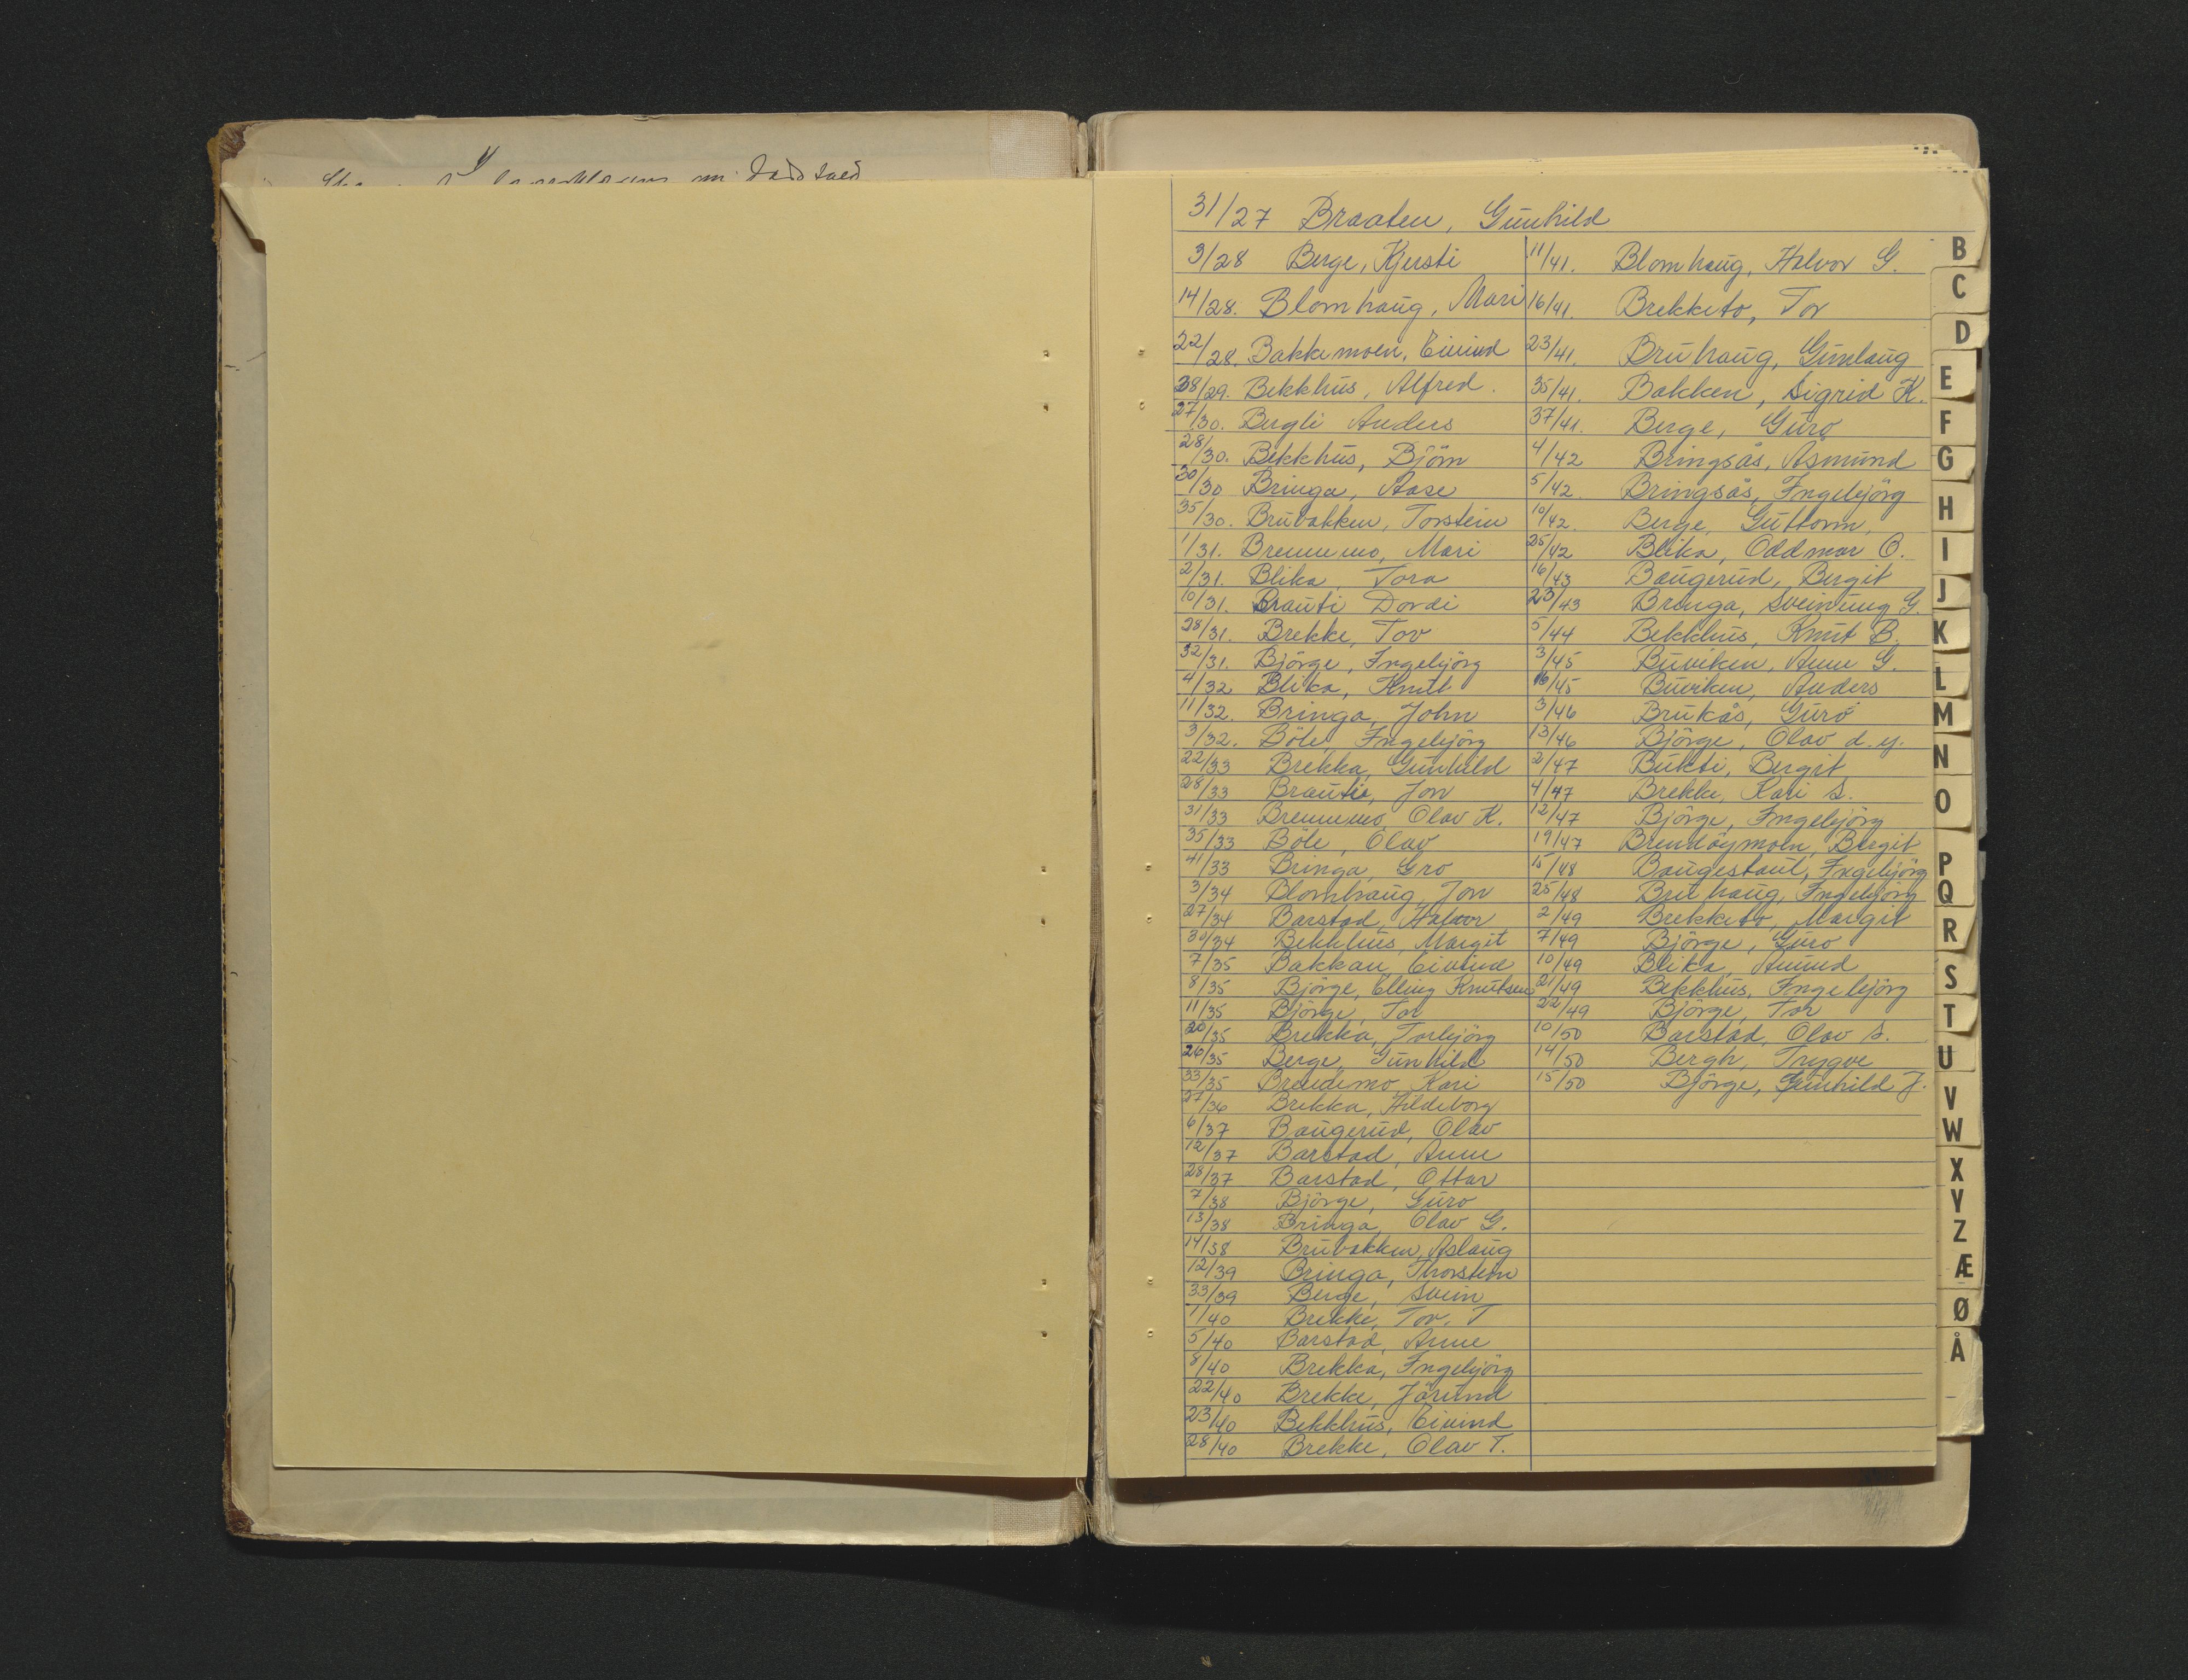 31/27 Braaten, Gunhild
3/28 Berge, Kjersti
14/28. Blomhaug, Mari
22/28. Bakkemoen, Eivind
28/29. Bekkhus, Alfred.
27/30. Bergli Anders
28/30. Bekkhus, Björn
30/30 Bringa, Aase
35/30. Brubakken, Torstein
1/31. Brennemo, Mari
2/31. Blika, Tora
10/31. Brauti Dordi
28/31. Brekke, Tov
32/31. Björge, Ingebjörg
4/32 Blika, Knut
11/32. Bringa, John
3/32. Böle, Ingebjörg
22/33 Brekka, Gunhild
28/33 Brauti, Jon
31/33 Brennemo, Olav K.
35/33 Böle, Olav
41/33 Bringa, Gro
3/34 Blomhaug, Jon
27/34 Barstad, Halvor
30/34 Bekkhus, Margit
7/35 Bakkan, Eivind
8/35 Björge, Elling Knutsen
11/35 Björge, Tor
20/35 Brekka, Torbjörg
26/35 Berge, Gunhild
33/35 Brendemo, Kari
27/36 Brekka, Hildeborg
6/37 Baugerud, Olav
12/37 Barstad, Anne
28/37 Barstad, Ottar
7/38 Björge, Guro
13/38 Bringa, Olav G.
14/38 Brubakken, Aslaug
12/39 Bringa, Thorstein
33/39 Berge, Svein
1/40 Brekke, Tov. T
5/40 Barstad, Anne
8/40 Brekka, Ingebjörg
22/40 Brekke, Jörund
23/40 Bekkhus, Eivind
28/40 Brekke, Olav T.
11/41. Blomhaug, Halvor G.
16/41. Brekketo, Tor
23/41. Bruhaug, Gunlaug
35/41. Bakken, Sigrid K.
37/41. Berge, Guro
4/42 Bringsås, Åsmund
5/42. Bringsås, Ingebjörg
10/42. Berge, Guttorm,
25/42 Blika, Oddmar O.
16/43 Baugerud, Bergit
23/43 Bringa, Sveinung G.
5/44 Bekkhus, Knut B.
3/45 Buviken, Anne G.
16/45 Buviken, Anders
3/46 Brukås, Guro
13/46 Björge, Olav d.y.
2/47 Bukti, Bergit
4/47 Brekke, Kari S.
12/47 Björge, Ingebjörg
19/47 Brendöymoen, Bergit
15/48 Baugestaul, Ingebjörg
25/48 Bruhaug, Ingebjörg
2/49 Brekketo, Margit
7/49 Björge, Guro
10/49 Blika, Amund
21/49 Bekkhus, Ingebjörg
22/49 Björge, Tor
10/50 Barstad, Olav S.
14/50 Bergh, Trygve
15/50 Björge, Gunhild J.
B
C
D
E
F
G
H
I
J
K
L
M
N
O
P
Q
R
S
T
U
V
W
X
Y
Z
Æ
Ø
Å